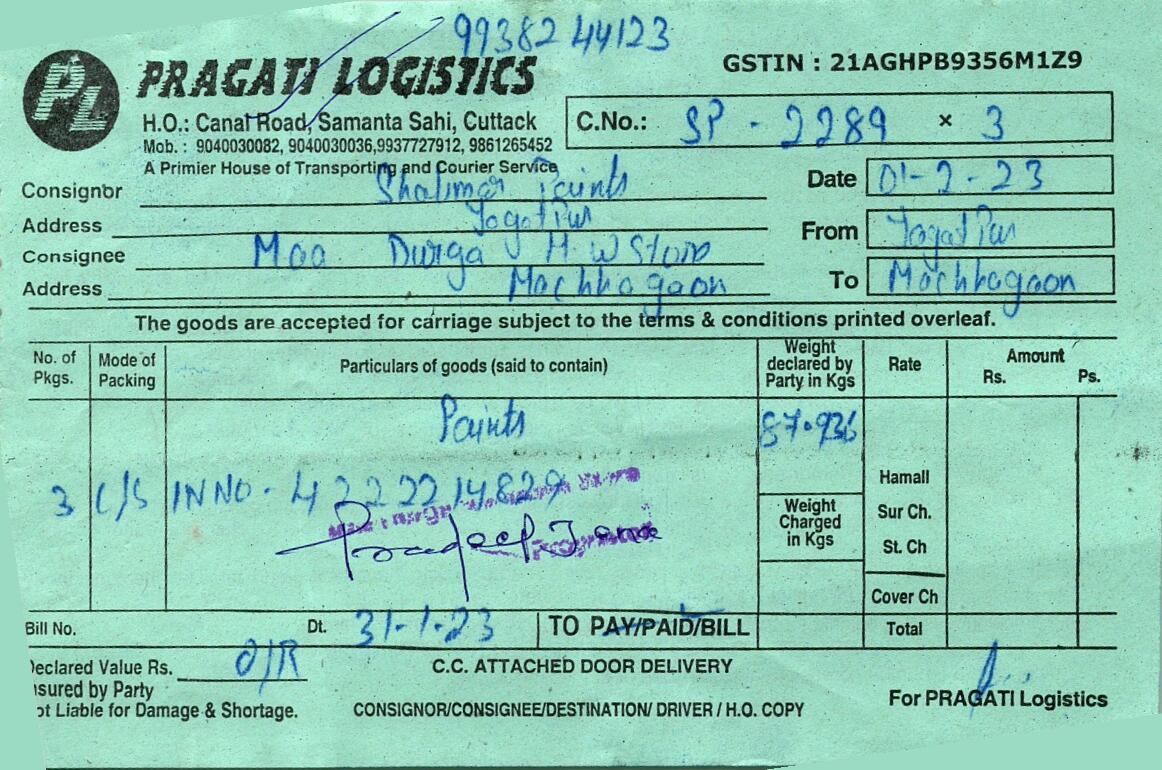 99382 44123
PL
PRAGATI LOGISTICS
GSTIN : 21AGHPB9356M1Z9
H.O.: Canal Road, Samanta Sahi, Cuttack
Mob. : 9040030082, 9040030036,9937727912, 9861265452
A Primier House of Transporting and Courier Service
C.No.: SP - 2289 × 3
Consignor Shalimar Paints
Date 01-2-23
Address Jagatpur
From Jagatpur
Consignee Maa Durga H.W Store
Address Machhagaon
To Machhagaon
The goods are accepted for carriage subject to the terms & conditions printed overleaf.
No. of Pkgs. Mode of Packing Particulars of goods (said to contain) Weight declared by Party in Kgs Rate Amount Rs. Ps.
Paints 87.936
3 C/S INNO - 4222214829
Pradeep Jana
Weight Charged in Kgs
Hamall
Sur Ch.
St. Ch
Cover Ch
Bill No. Dt. 31-1-23 TO PAY/PAID/BILL Total
Declared Value Rs. O/R C.C. ATTACHED DOOR DELIVERY
nsured by Party
ot Liable for Damage & Shortage. CONSIGNOR/CONSIGNEE/DESTINATION/ DRIVER / H.O. COPY
For PRAGATI Logistics